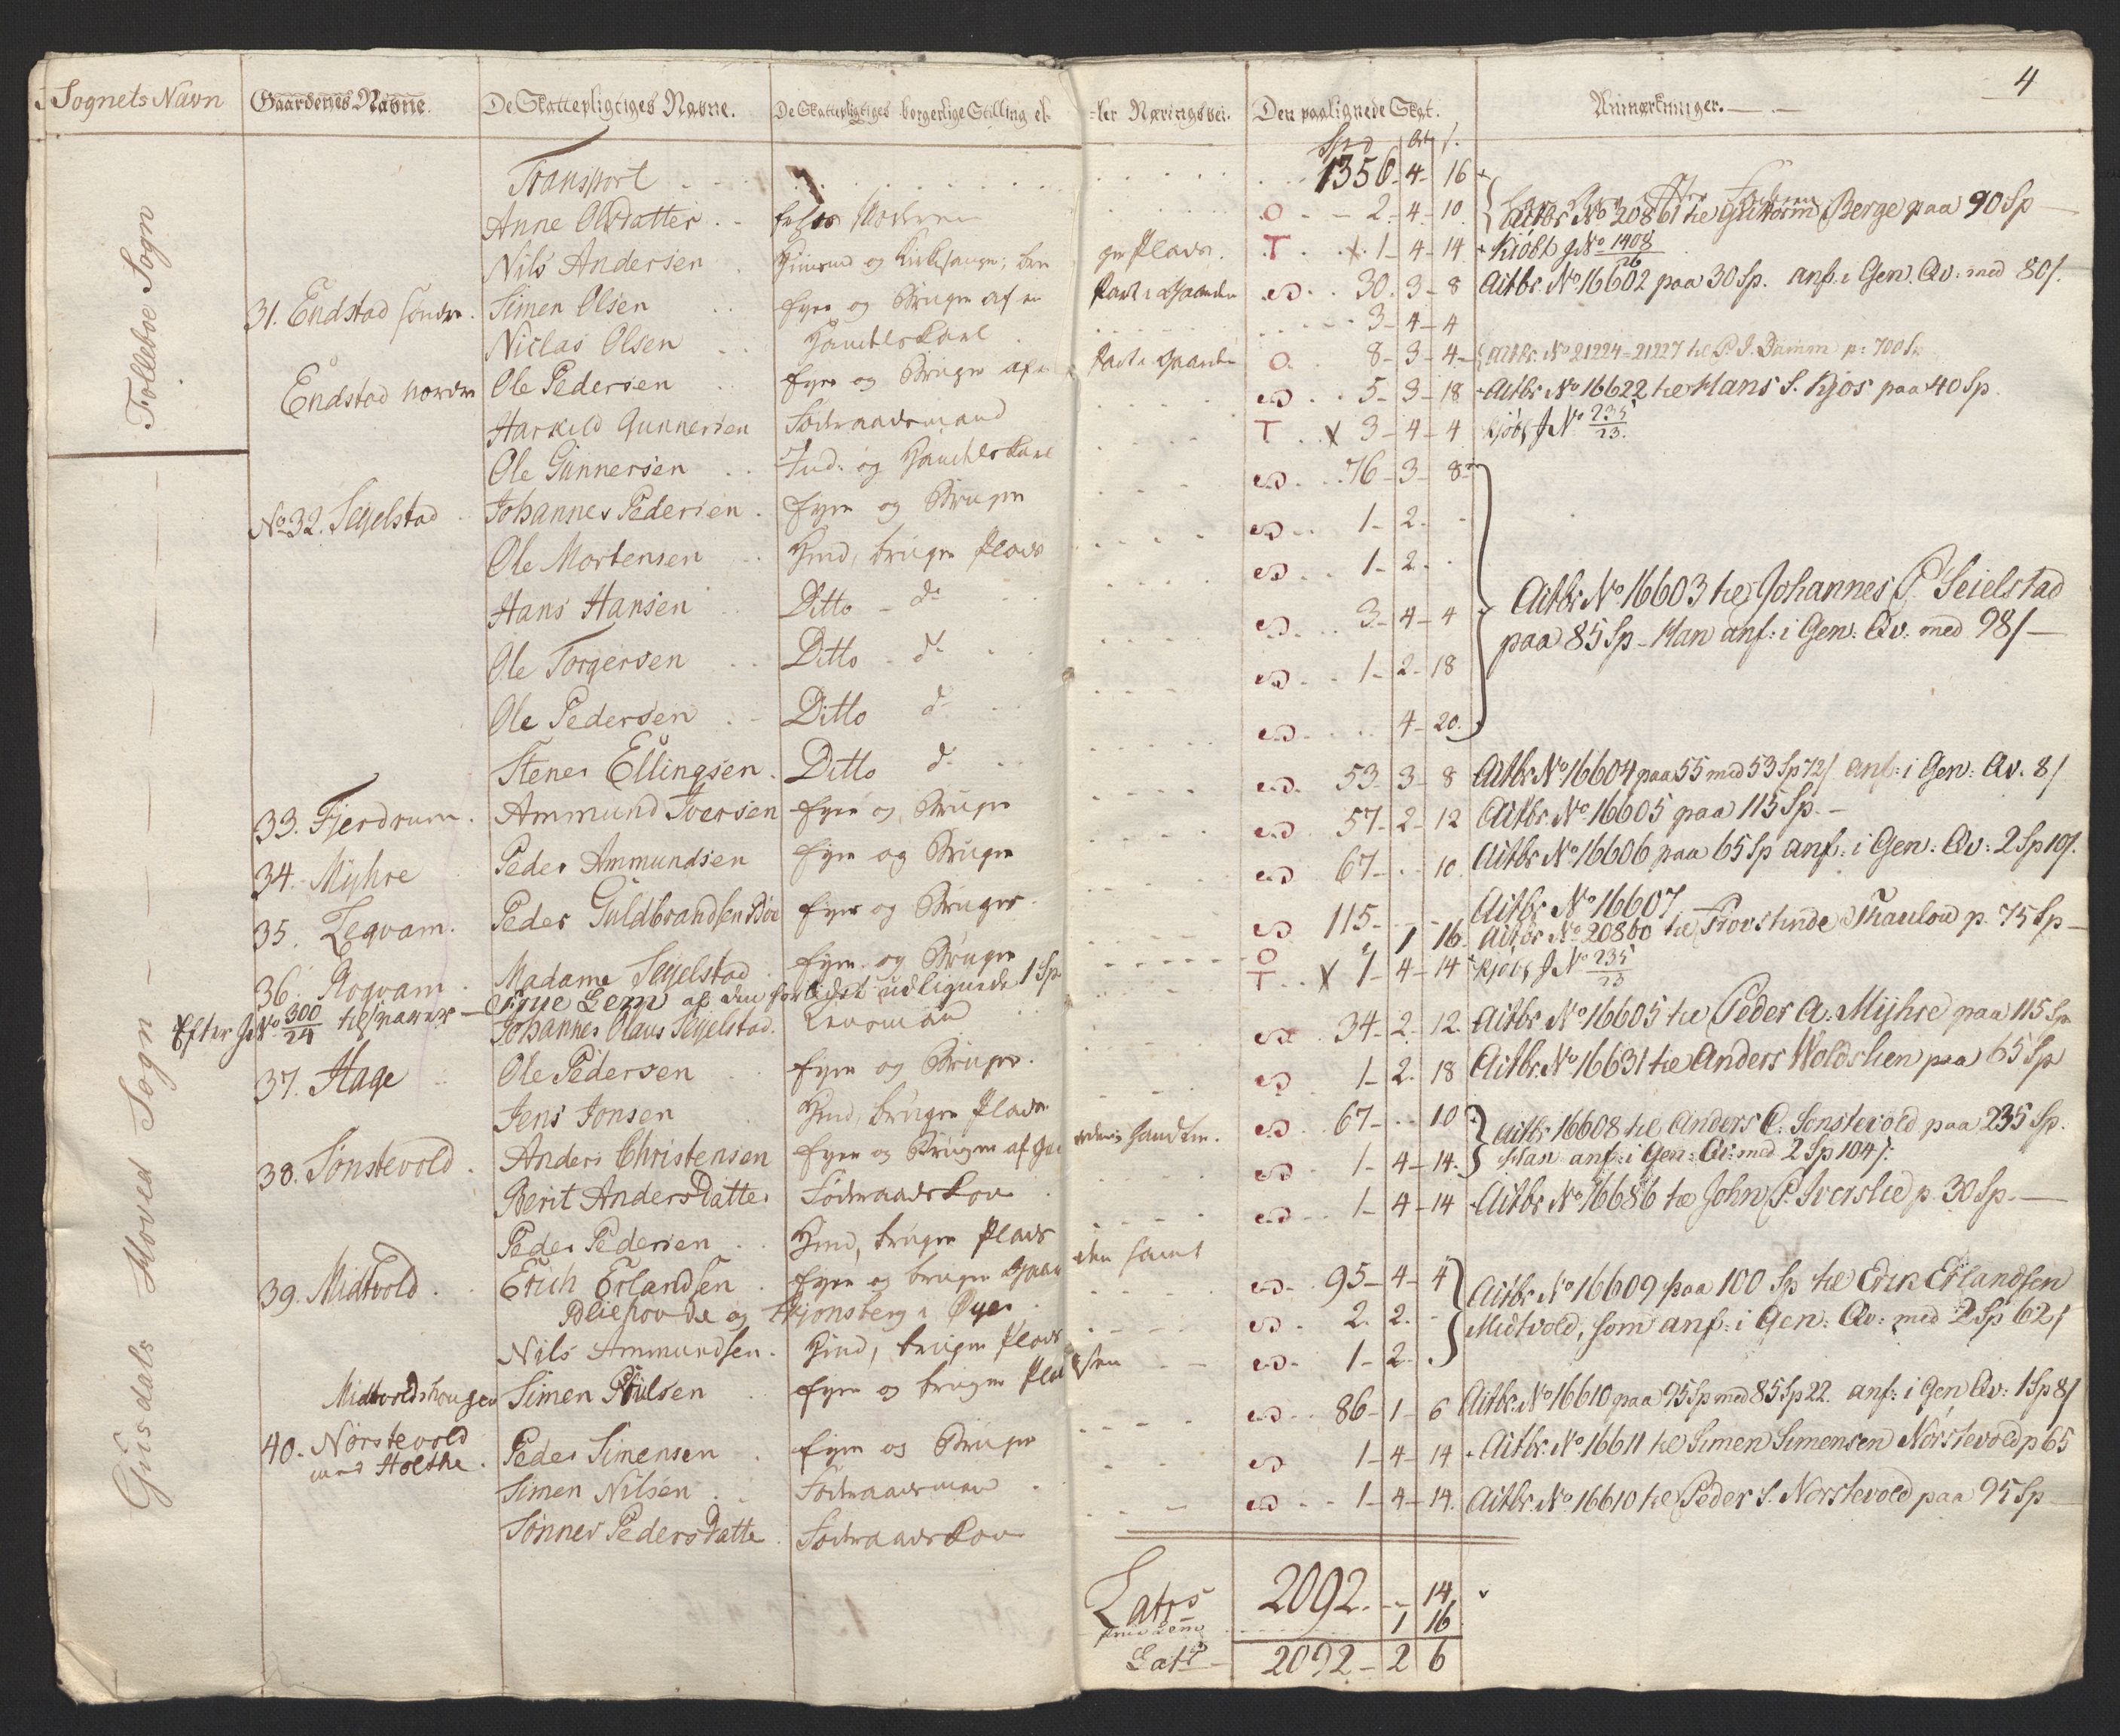 4
Sognets Navn Gaardenes Navne. De Skattepligtiges Navne. De Skattepligtiges borgerlige Stilling el- -ler Næringsvei. Den paalignede Skat. Anmærkninger.
Spd
Transport 1356-4-16
Anne Olsdatter O 2-4-10 Aitbr No 20861 til Guttorm Berge paa 90 Sp
Nils Andersen T x 1-4-14 Kjøbt J No 1408/26
31. Endstad søndre. Simen Olsen Eyer og Bruger af en Part i Gaarden 30. 3-8 Aitbr. No 16602 paa 30 Sp. anf. i Gen. Qv. med 80/.
Niclas Olsen Handelskarl 3-4-4
Endstad nordre Ole Pedersen Eyer og Bruger af en Part i Gaarden O 8-3-4 Aitbr. No 21224-21227 til P. J. Damm p: 700 Sp
Harkild Gunnersen Føderaadsmand 5-3-18 Aitbr No 16622 til Hans S. Kjos paa 40 Sp.
Ole Gunnersen Ind. og Handelskarl T x 3-4-4 Kjøbt J No 235/23.
No 32. Seyelstad Johannes Pedersen Eyer og Bruger 76-3-8
Ole Mortensen Huusmd, bruger Plads 1-2
Hans Hansen Ditto do 1-2
Ole Torgersen Ditto do 3-4-4
Aitbr No 16603 til Johannes P. Seielstad
paa 85 Sp - Han anf: i Gen: Qv: med 98/
Ole Pedersen Ditto do 1-2-18
Stener Ellingsen. Ditto do 4-20.
33. Fjerdrum. Ammund Iversen Eyer og Bruger 53-3-8 Aitbr No 16604 paa 55 med 53 Sp 72/ anf: i Gen: Qv. 8/
34. Myhre Peder Ammundsen Eyer og Bruger 57-2-12 Aitbr No 16605 paa 115 Sp.-
35. Legvam. Peder Guldbrandsen Eyer og Bruger. 67- 10. Aitbr No 16606 paa 65 Sp anf: i Gen: Qv: 2 Sp 10/.
36. Rogvam. Madame Seyelstad Eyer og Bruger 115- Aitbr No 16607
Efter J No 300/24 til Frue Lem af den forhen udlignede 1 Sp O 1 16. Aitbr No 20860 til Provstinde Thaulow p. 75 Sp
Johannes Olaus Seyelstad. Lensmand T x 1-4-14 Kjøbt J No 235/23
37. Hage Ole Pedersen Eyer og Bruger. 34-2-12. Aitbr No 16605 til Peder A. Myhre paa 115 Sp
Jens Jonsen Huusmd, bruger Plads 1-2-18 Aitbr. No 16631 til Anders Woldslien paa 65 Sp
38. Sønstevold. Anders Christensen Eyer og Bruger af 67- 10 Aitbr 16608 til Anders C. Sønstevold paa 235 Sp.
Berit Andersdatter Føderaadskone 1-4-14. Han anf: i Gen: Qv: med 2 Sp 104/:
Peder Pedersen Huusmd, bruger Plads 1-4-14 Aitbr No 16686 til John P. Iverslie p. 30 Sp.
39. Midtvold. Erich Erlandsen Eyer og bruger Gaarden samt 95-4-4 Aitbr No 16609 paa 100 Sp til Erik Erlandsen
og Skjønsberg i Øyer
Nils Ammundsen. Huusmd, bruger Plads 2. 2. Midtvold, som anf: i Gen: Qv: med 2 Sp 62/
Midtvoldshougen Simen Eyer og bruger 1-2.
40. Nørstevold med Holthe. Peder Simensen Eyer og Bruger 86-1-6 Aitbr. No 16610 paa 95 Sp med 85 Sp 22. anf: i Gen Qv: 1 Sp 8/
Simen Nilsen Føderaadsmand 1-4-14 Aitbr. No 16611 til Simen Simensen Nørstevold p 65
Sønnev Pedersdatter Føderaadskone 1-4-14. Aitbr. No 16610 til Peder S. Nørstevold paa 95 Sp
Latus 2092. 14
Frue Lem 1 16
Lats 2092-2 6
Folleboe Sogn
Gusdals Hoved Sogn